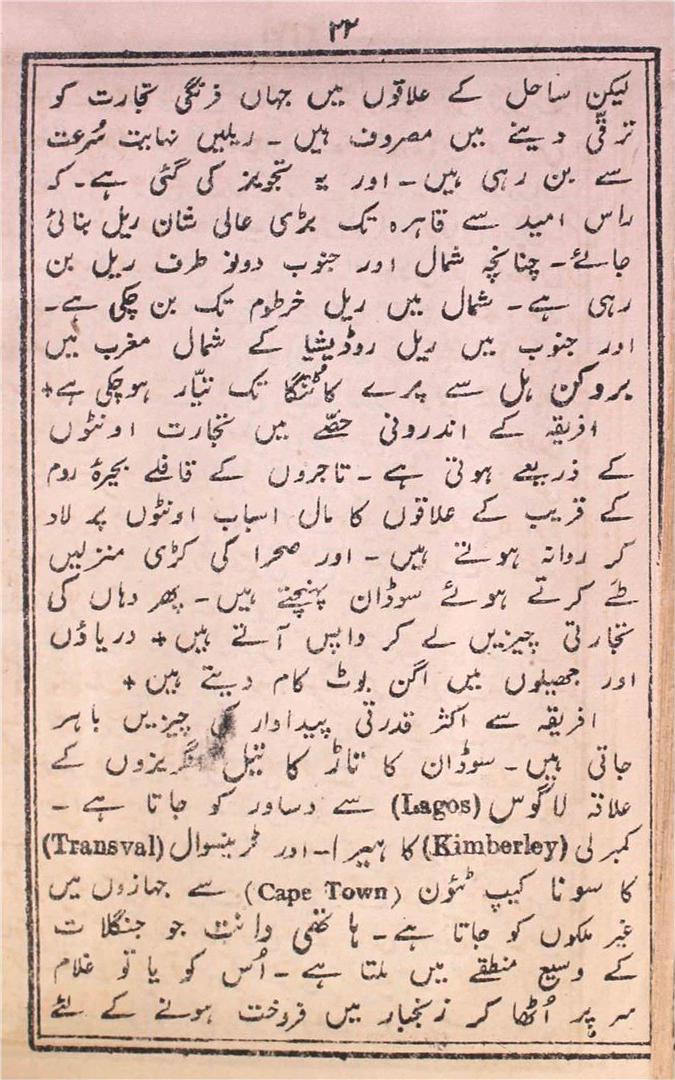 ۲۲
لیکن ساحل کے علاقوں میں جہاں فرنگی تجارت کو
ترقّی دینے میں مصروف ہیں ـ ریلیں نہایت سُرعت
سے بن رہی ہیں ـ اور یہ تجویز کی گئی ہے ـ کہ
راس امید سے قاہرہ تک بڑی عالی شان ریل بنائی
جائے ـ چنانچہ شمال اور جنوب دونو طرف ریل بن
رہی ہے ـ شمال میں ریل خرطوم تک بن چکی ہے ـ
اور جنوب میں ریل روڈیشیا کے شمال مغرب میں
بروکن ہل سے پرے کاٹنگا تک تیّار ہوچکی ہے +
افریقہ کے اندرونی حصّے میں تجارت اونٹوں
کے ذریعے ہوتی ہے ـ تاجروں کے قافلے بحیرۂ روم
کے قریب کے علاقوں کا مال اسباب اونٹوں پر لاد
کر روانہ ہوتے ہیں ـ اور صحرا کی کڑی منزلیں
طے کرتے ہوئے سوڈان پہنچتے ہیں ـ پھر وہاں کی
تجارتی چیزیں لے کر واپس آتے ہیں + دریاؤں
اور جھیلوں میں اگن بوٹ کام دیتے ہیں +
افریقہ سے اکثر قدرتی پیداوار کی چیزیں باہر
جاتی ہیں ـ سوڈان کا تاڑ کا تیل گریزوں کے
علاقہ لاگوس (Lagos) سے دساور کو جاتا ہے ـ
کمبرلی (Kimberley) کا ہیرا ـ اور ٹرینسوال (Transval)
کا سونا کیپ ٹئون (Cape Town) سے جہازوں میں
غیر ملکوں کو جاتا ہے ـ ہاتھی دانت جو جنگلات
کے وسیع منطقے میں ملتا ہے ـ اُس کو یا تو غلام
سر پر اُٹھا کر زنجبار میں فروخت ہونے کے لئے